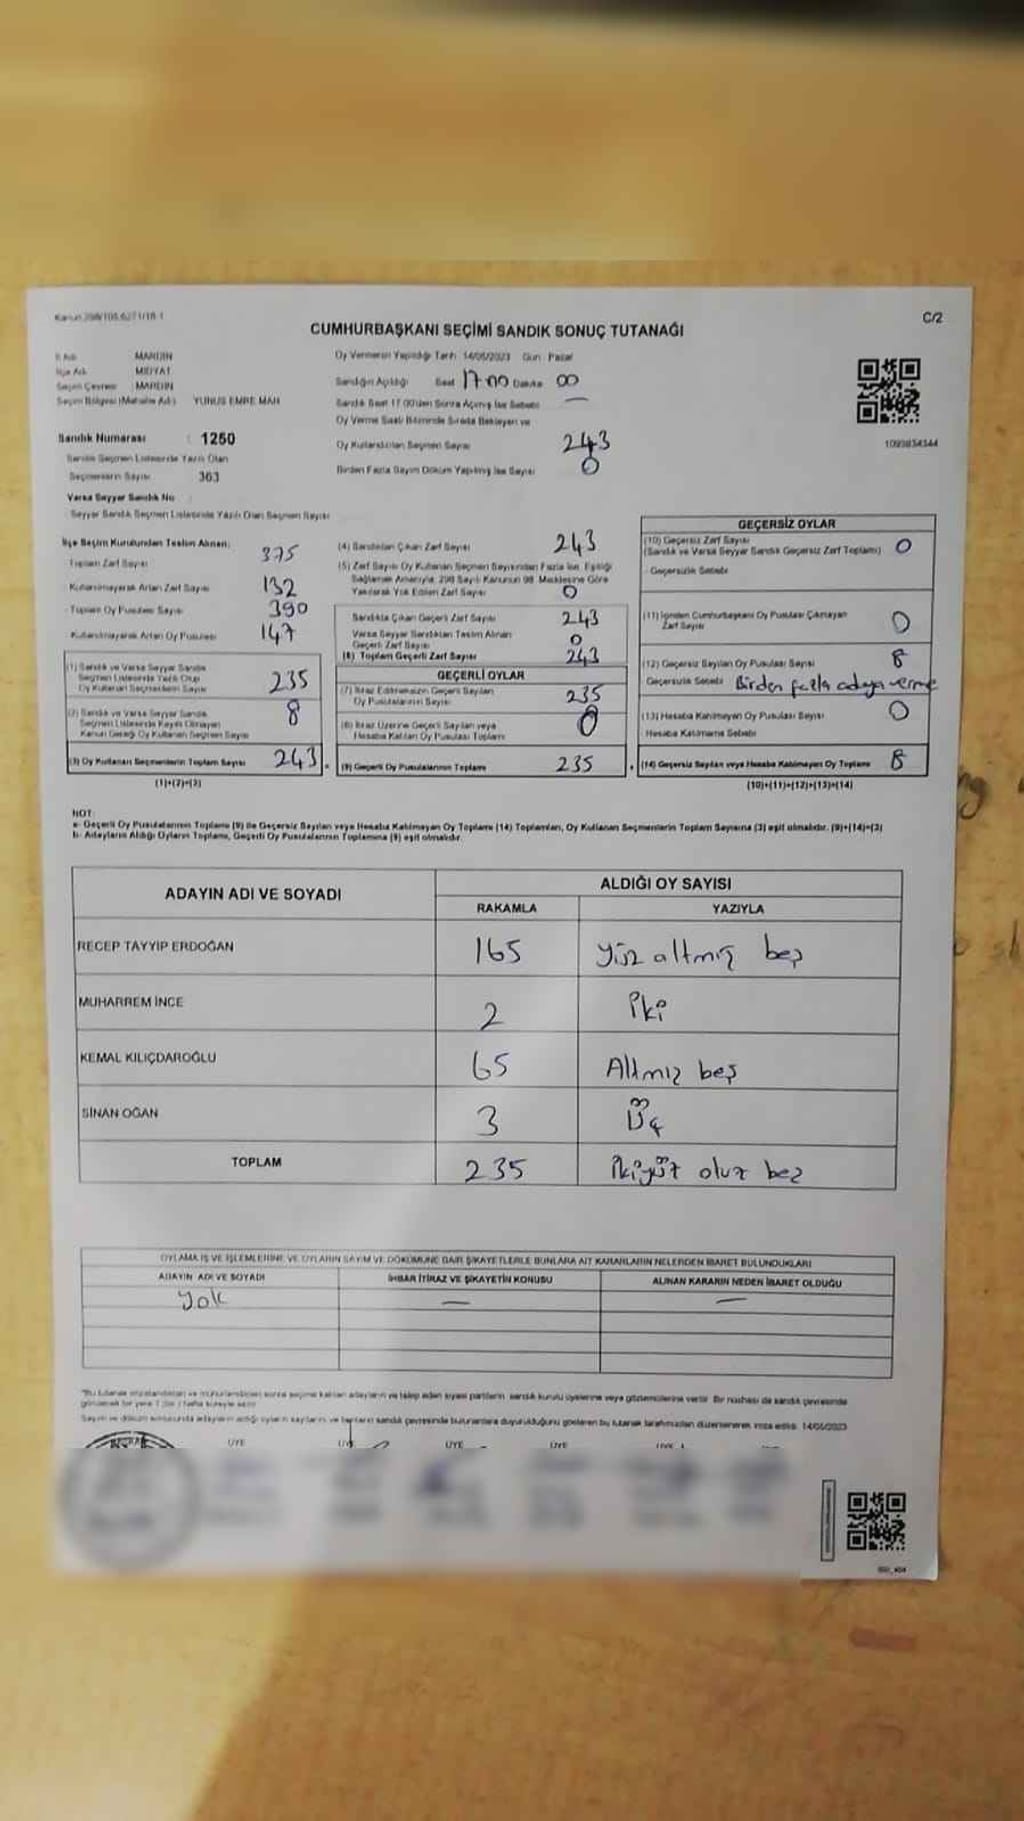 Kanun 298/105,6271/18-1
C/2
CUMHURBAŞKANI SEÇİMİ SANDIK SONUÇ TUTANAĞI
İl Adı MARDİN
İlçe Adı MİDYAT
Seçim Çevresi MARDİN
Seçim Bölgesi (Mahalle Adı) YUNUS EMRE MAH
Sandık Numarası : 1250
Sandık Seçmen Listesinde Yazılı Olan
Seçmenlerin Sayısı 363
Varsa Seyyar Sandık No
Seyyar Sandık Seçmen Listesinde Yazılı Olan Seçmen Sayısı
Oy Vermenin Yapıldığı Tarih 14/05/2023 Gün: Pazar
Sandığın Açıldığı Saat 17:00 Dakika 00
Sandık Saat 17.00'den Sonra Açılmış İse Sebebi —
Oy Verme Saati Bitiminde Sırada Bekleyen ve
Oy Kullandırılan Seçmen Sayısı 243
Birden Fazla Sayım Döküm Yapılmış İse Sayısı 0
1093834344
İlçe Seçim Kurulundan Teslim Alınan:
Toplam Zarf Sayısı 375
Kullanılmayarak Artan Zarf Sayısı 132
Toplam Oy Pusulası Sayısı 390
Kullanılmayarak Artan Oy Pusulası 147
(1) Sandık ve Varsa Seyyar Sandık
Seçmen Listesinde Yazılı Olup
Oy Kullanan Seçmenlerin Sayısı 235
(2) Sandık ve Varsa Seyyar Sandık
Seçmen Listesinde Kaydı Olmayan
Kanun Gereği Oy Kullanan Seçmen Sayısı 8
(3) Oy Kullanan Seçmenlerin Toplam Sayısı 243
(1)+(2)=(3)
(4) Sandıktan Çıkan Zarf Sayısı 243
(5) Zarf Sayısı Oy Kullanan Seçmen Sayısından Fazla İse, Eşitliği
Sağlamak Amacıyla, 298 Sayılı Kanunun 98. Maddesine Göre
Yakılarak Yok Edilen Zarf Sayısı 0
Sandıkta Çıkan Geçerli Zarf Sayısı 243
Varsa Seyyar Sandıktan Teslim Alınan
Geçerli Zarf Sayısı 0
(6) Toplam Geçerli Zarf Sayısı 243
GEÇERLİ OYLAR
(7) İtiraz Edilmeksizin Geçerli Sayılan
Oy Pusulalarının Sayısı 235
(8) İtiraz Üzerine Geçerli Sayılan veya
Hesaba Katılan Oy Pusulası Toplamı 0
(9) Geçerli Oy Pusulalarının Toplamı 235
GEÇERSİZ OYLAR
(10) Geçersiz Zarf Sayısı
(Sandık ve Varsa Seyyar Sandık Geçersiz Zarf Toplamı) 0
Geçersizlik Sebebi
(11) İçinden Cumhurbaşkanı Oy Pusulası Çıkmayan
Zarf Sayısı 0
(12) Geçersiz Sayılan Oy Pusulası Sayısı 8
Geçersizlik Sebebi Birden fazla adaya verme
(13) Hesaba Katılmayan Oy Pusulası Sayısı 0
Hesaba Katılmama Sebebi
(14) Geçersiz Sayılan veya Hesaba Katılmayan Oy Toplamı 8
(10)+(11)+(12)+(13)=(14)
NOT:
a- Geçerli Oy Pusulalarının Toplamı (9) ile Geçersiz Sayılan veya Hesaba Katılmayan Oy Toplamı (14) Toplamları, Oy Kullanan Seçmenlerin Toplam Sayısına (3) eşit olmalıdır. (9)+(14)=(3)
b- Adayların Aldığı Oyların Toplamı, Geçerli Oy Pusulalarının Toplamına (9) eşit olmalıdır.
ADAYIN ADI VE SOYADI
ALDIĞI OY SAYISI
RAKAMLA YAZIYLA
RECEP TAYYİP ERDOĞAN 165 yüz altmış beş
MUHARREM İNCE 2 İki
KEMAL KILIÇDAROĞLU 65 Altmış beş
SİNAN OĞAN 3 Üç
TOPLAM 235 İkiyüz otuz beş
OYLAMA İŞ VE İŞLEMLERİNE VE OYLARIN SAYIM VE DÖKÜMÜNE DAİR ŞİKAYETLERLE BUNLARA AİT KARARLARIN NELERDEN İBARET BULUNDUKLARI
ADAYIN ADI VE SOYADI İHBAR İTİRAZ VE ŞİKAYETİN KONUSU ALINAN KARARIN NEDEN İBARET OLDUĞU
Yok — —
ÜYE ÜYE ÜYE ÜYE